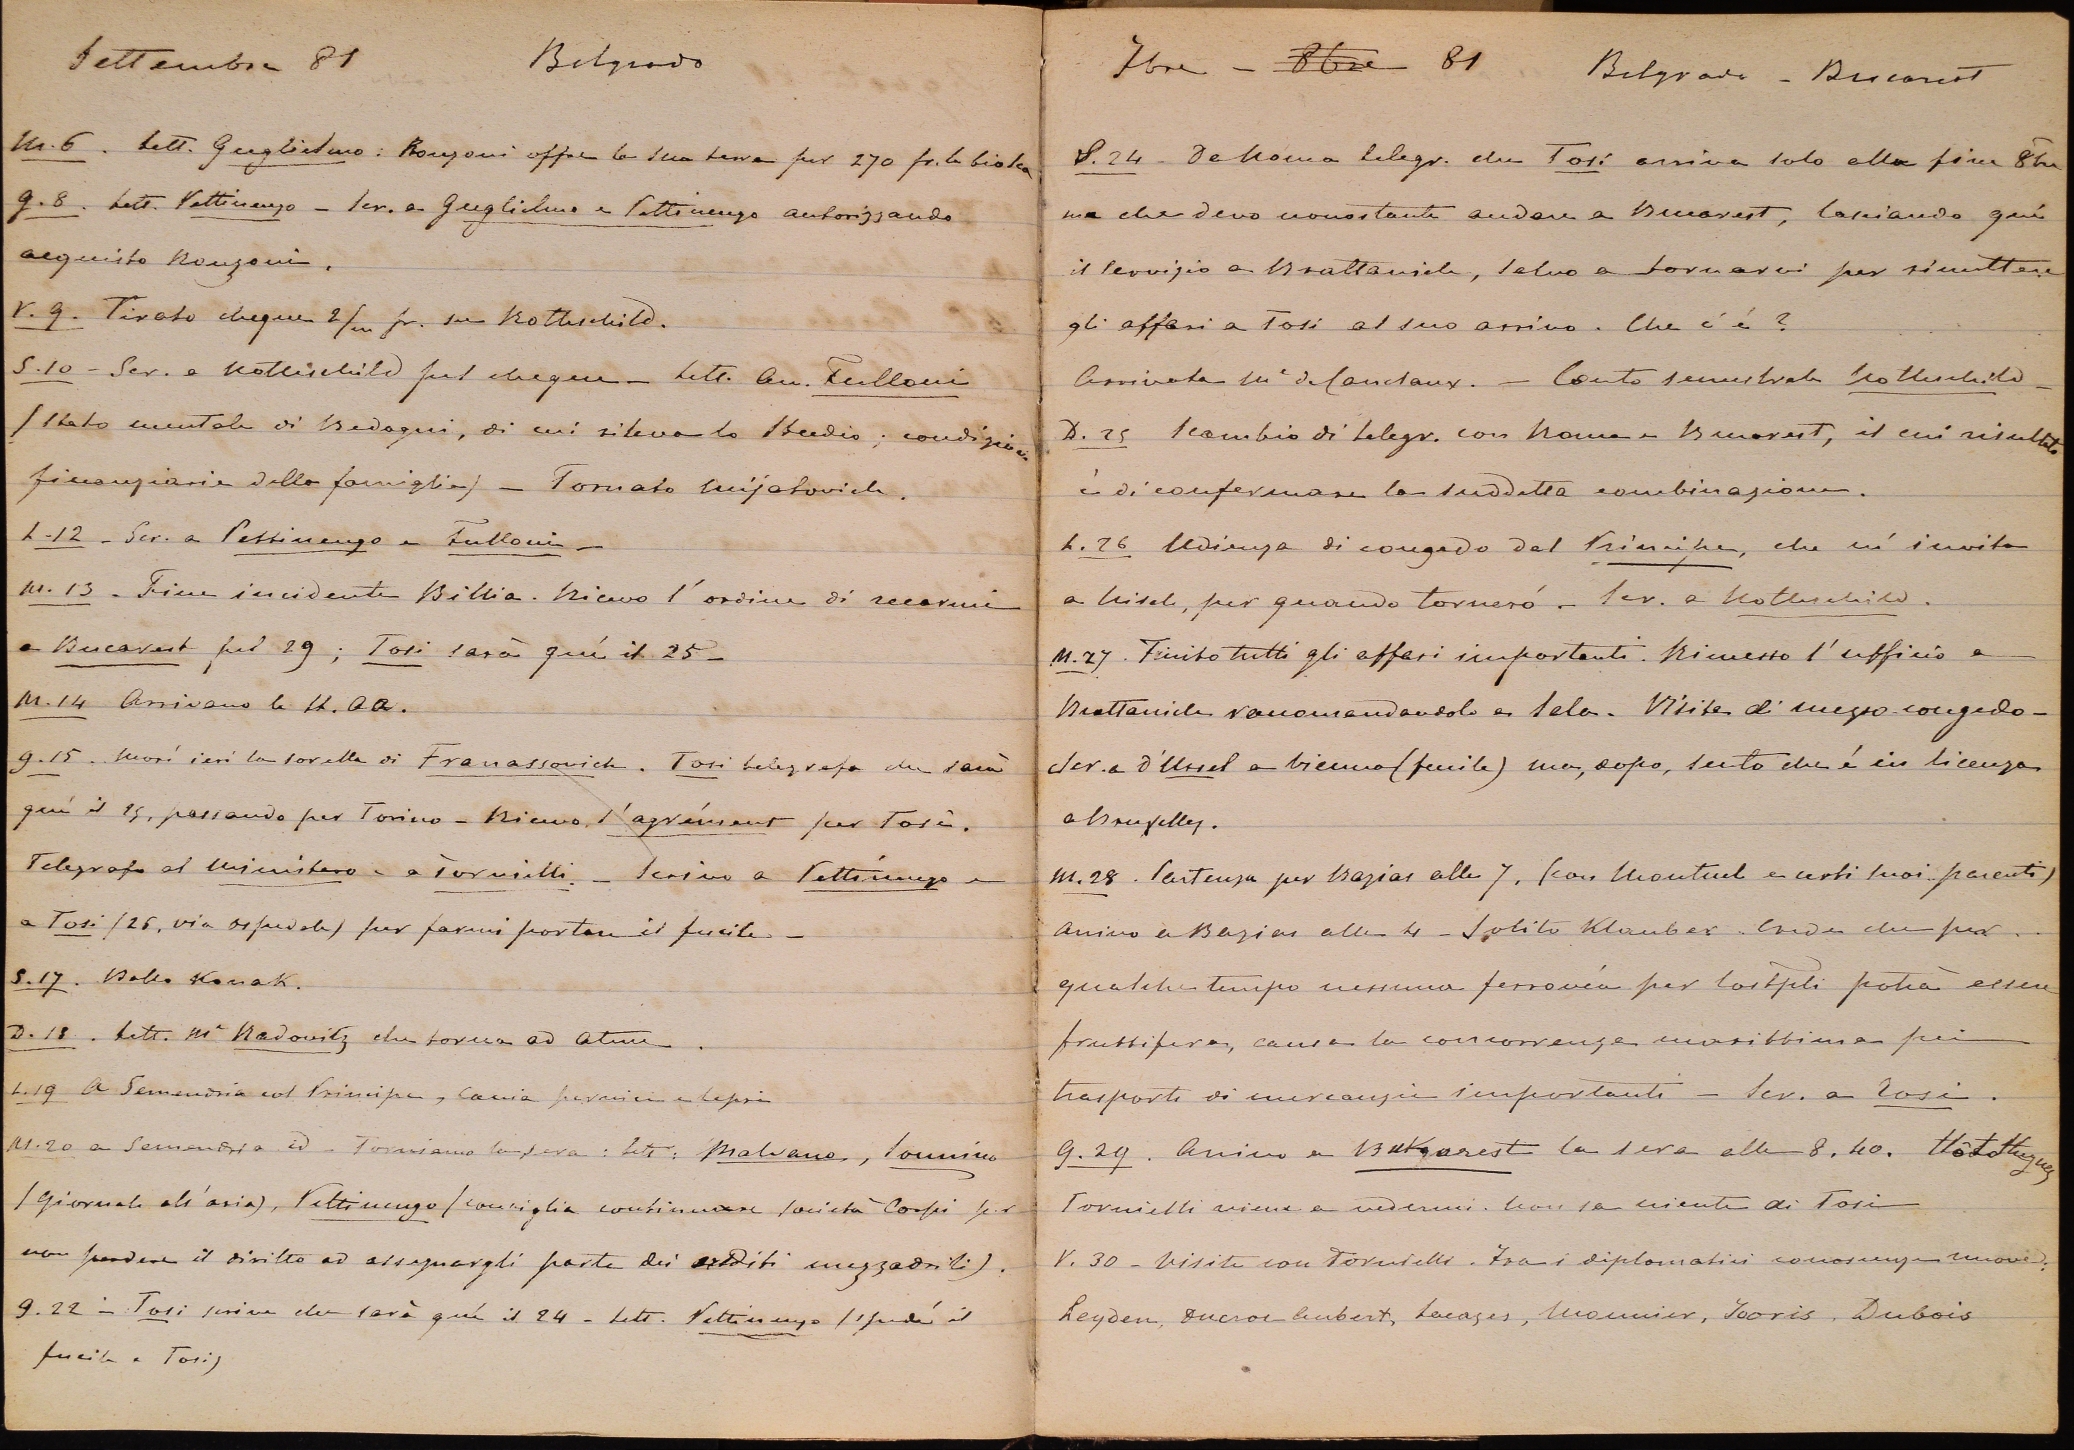 Settembre 81 Belgrado
M. 6. Lett. Guglielmo: Ronzoni offre la sua terra per 270 fr. la biolca
G. 8. Lett. Pettinengo – Scr. a Guglielmo e Pettinengo autorizzando
acquisto Ronzoni.
V. 9. Tirato cheque 2/m fr. su Rothschild.
S. 10 – Scr. a Rothschild pel cheque – Lett. An. Fulloni
(Stato mentale di Bedogni, di cui rilevo lo Studio; condizioni
finanziarie della famiglia) – Tornato Mijatovich.
L. 12 – Scr. a Pettinengo e Fulloni –
M. 13 – Fine incidente Billia. Ricevo l'ordine di recarmi
a Bucarest pel 29; Tosi sarà quì il 25 –
M. 14 Arrivano le LL. AA.
G. 15. Morì ieri la sorella di Franassovich. Tosi telegrafa che sarà
quì il 25, passando per Torino – Ricevo l'agrément per Tosi.
Telegrafo al Ministero e a Tornielli – Scrivo a Pettinengo e
a Tosi (26, via ospedale) per farmi portare il fucile –
S. 17. Ballo Konak.
D. 18. Lett. Mr Radowitz che torna ad Atene.
L. 19 A Semendria col Principe, Caccia pernici e lepri
M. 20 a Semendria id – Torniamo la sera: Lett: Malvano, Sonnino
(Giornale all'aria), Pettinengo (consiglia continuare società Corpi per
non perdere il diritto ad assegnargli parte dei crediti mezzadrili).
G. 22 – Tosi scrive che sarà quì il 24 – Lett. Pettinengo (spedì il
fucile a Tosi)
7bre – 8bre 81 Belgrado – Bucarest
S. 24 – Da Roma telegr. che Tosi arriva solo alla fine 8bre
ma che devo nonostante andare a Bucarest, lasciando quì
il servizio a Brattanich, salvo a tornarvi per rimettere
gli affari a Tosi al suo arrivo. Che c'è?
Arrivata Mr de – Conto semestrale Rothschild –
D. 25 Scambio di telegr. con Roma e Bucarest, il cui risultato
è di confermare la suddetta combinazione.
L. 26 Udienza di congedo dal Principe, che m'invita
a Nisch, per quando tornerò – Scr. a Rothschild.
M. 27. Finito tutti gli affari importanti. Rimesso l'ufficio a
Brattanich raccomandandolo a Sala. Visite di mezzo congedo –
Scr. a d'Ussel a Vienna (fucile) ma, dopo, sento che è in licenza
a Bruxelles.
M. 28. Partenza per Bazias alle 7, (con Montuel e certi suoi parenti)
Arrivo a Bazias alle 4 – Solito Klauber. Crede che per
qualche tempo nessuna ferrovia per Costpli potrà essere
fruttifera, causa la concorrenza marittima pei
trasporti di mercanzie importanti – Scr. a Tosi.
G. 29. Arrivo a Bukarest la sera alle 8.40. Hôtel Hugues
Tornielli viene a vedermi. Non sa niente di Tosi
V. 30 – Visite con Tornielli. Fra i diplomatici conoscenze nuove:
Leyden, Ducros Aubert, Lucazes, Mounier, Jooris, Dubois